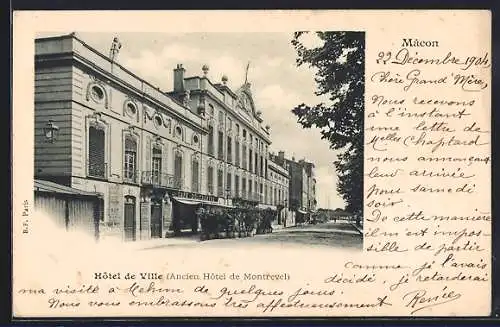 Mâcon
22 Décembre 1904
Chère Grand' Mère,
Nous recevons
à l'instant
une lettre de
Melles Chaptard
nous annonçant
leur arrivée
pour samedi
soir.
De cette manière
il m'est impos
sible de partir
comme je l'avais
décidé, je retarderai
ma visite à Mehun de quelques jours.
Nous vous embrassons très affectueusement
Renée
Hôtel de Ville (Ancien Hôtel de Montrevel)
B.F. Paris